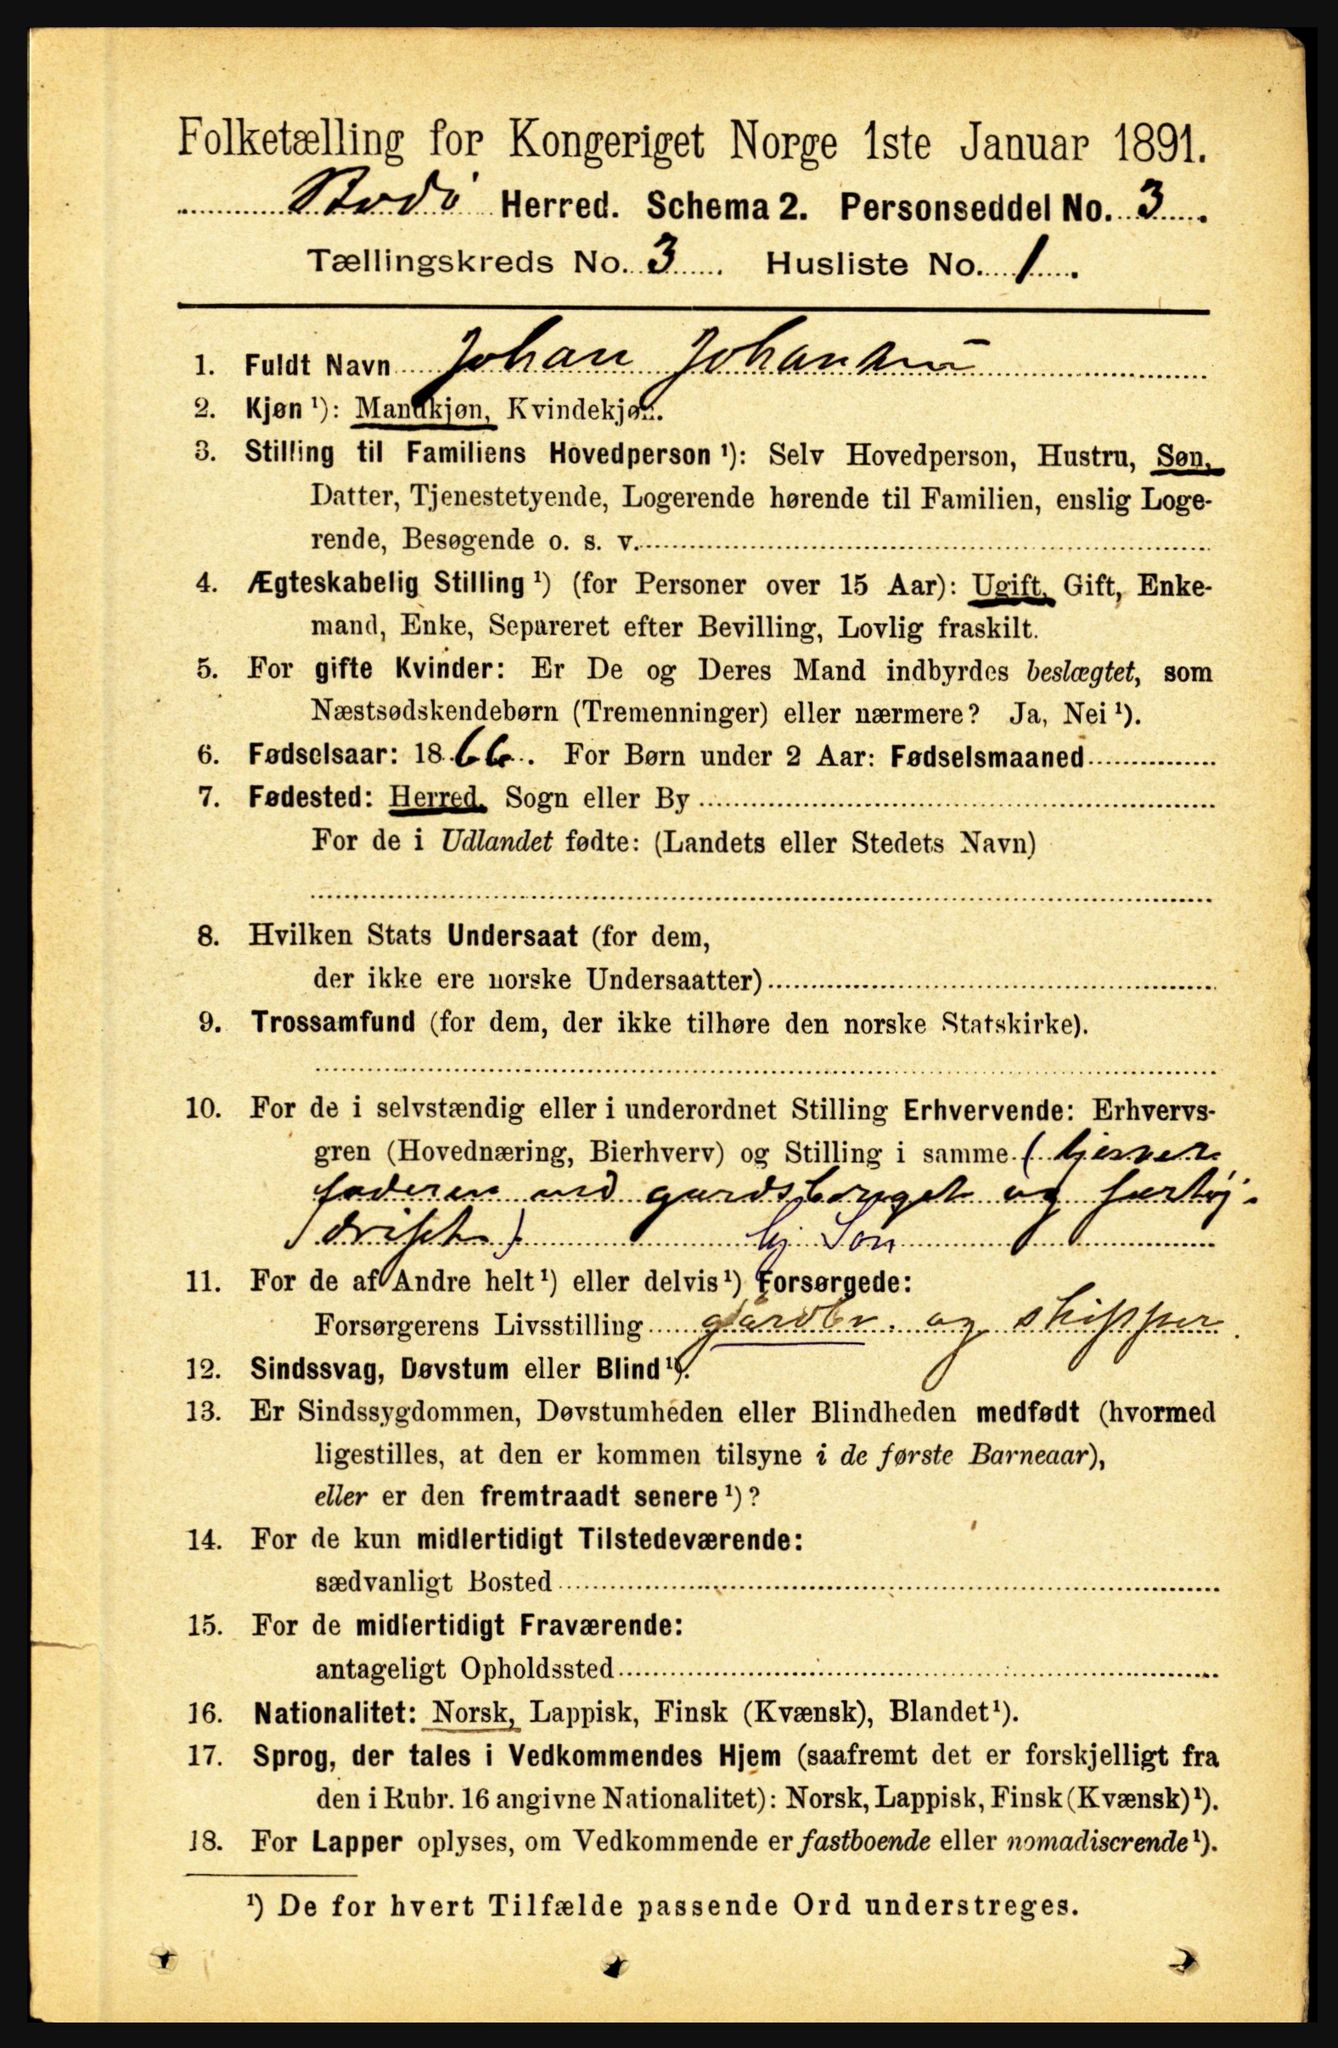 Folketælling for Kongeriget Norge 1ste Januar 1891.
Bodø Herred. Schema 2. Personseddel No. 3.
Tællingskreds No. 3. Husliste No. 1.
1. Fuldt Navn Johan Johansen
2. Kjøn ¹): Mandkjøn, Kvindekjøn.
3. Stilling til Familiens Hovedperson ¹): Selv Hovedperson, Hustru, Søn,
Datter, Tjenestetyende, Logerende hørende til Familien, enslig Loge-
rende, Besøgende o. s. v.
4. Ægteskabelig Stilling ¹) (for Personer over 15 Aar): Ugift, Gift, Enke-
mand, Enke, Separeret efter Bevilling, Lovlig fraskilt.
5. For gifte Kvinder: Er De og Deres Mand indbyrdes beslægtet, som
Næstsødskendebørn (Tremenninger) eller nærmere? Ja, Nei ¹).
6. Fødselsaar: 1866. For Børn under 2 Aar: Fødselsmaaned
7. Fødested: Herred, Sogn eller By
For de i Udlandet fødte: (Landets eller Stedets Navn)
8. Hvilken Stats Undersaat (for dem,
der ikke ere norske Undersaatter)
9. Trossamfund (for dem, der ikke tilhøre den norske Statskirke).
10. For de i selvstændig eller i underordnet Stilling Erhvervende: Erhvervs-
gren (Hovednæring, Bierhverv) og Stilling i samme (hjelper
faderen ved gardsbruget og fartøj-
drift) hj. Søn
11. For de af Andre helt ¹) eller delvis ¹) Forsørgede:
Forsørgerens Livsstilling gardbr. og skipper
12. Sindssvag, Døvstum eller Blind ¹).
13. Er Sindssygdommen, Døvstumheden eller Blindheden medfødt (hvormed
ligestilles, at den er kommen tilsyne i de første Barneaar),
eller er den fremtraadt senere ¹)?
14. For de kun midlertidigt Tilstedeværende:
sædvanligt Bosted
15. For de midlertidigt Fraværende:
antageligt Opholdssted
16. Nationalitet: Norsk, Lappisk, Finsk (Kvænsk), Blandet ¹).
17. Sprog, der tales i Vedkommendes Hjem (saafremt det er forskjelligt fra
den i Rubr. 16 angivne Nationalitet): Norsk, Lappisk, Finsk (Kvænsk) ¹).
18. For Lapper oplyses, om Vedkommende er fastboende eller nomadiserende ¹).
¹) De for hvert Tilfælde passende Ord understreges.